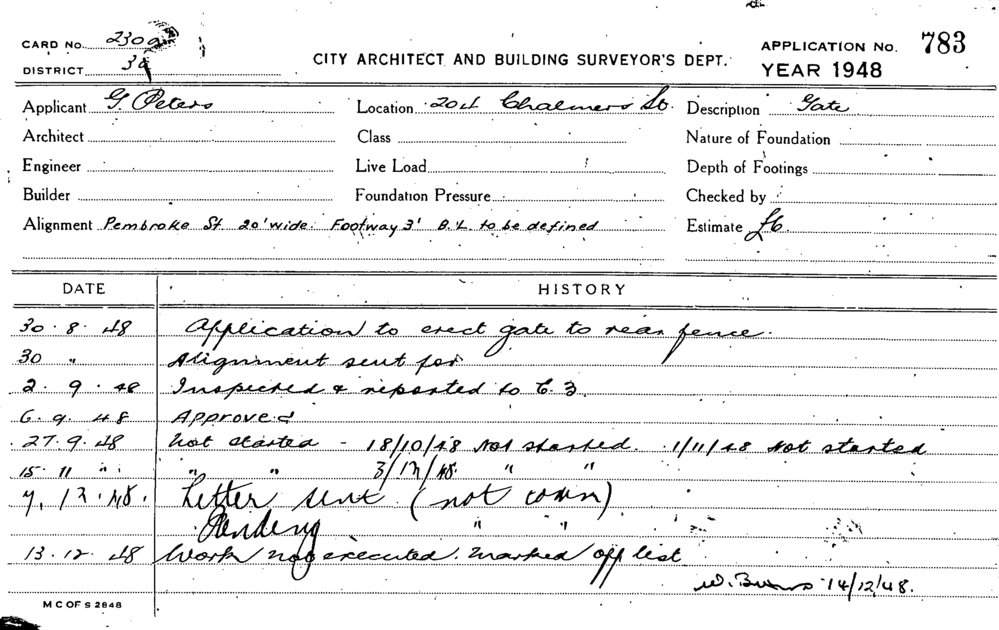 CARD NO. 2309
APPLICATION NO. 783
CITY ARCHITECT AND BUILDING SURVEYOR'S DEPT.
DISTRICT 3A
YEAR 1948
Applicant G. Peters Location 204 Chalmers St. Description Gate
Architect Class Nature of Foundation
Engineer Live Load Depth of Footings
Builder Foundation Pressure Checked by
Alignment Pembroke St 20' wide. Footway 3' B.L. to be defined Estimate £6
DATE HISTORY
30.8.48 Application to erect gate to rear fence.
30 " Alignment sent for
2.9.48 Inspected & reported to C.B.
6.9.48 Approved
27.9.48 Not started - 18/10/48 Not started. 1/11/48 Not started
15 11 " " " 3/12/48 " "
7.12.48. Letter sent (not comm)
Pending " "
13.12.48 Work not executed. Marked off list
W. Burns 14/12/48.
M C OF S 2848